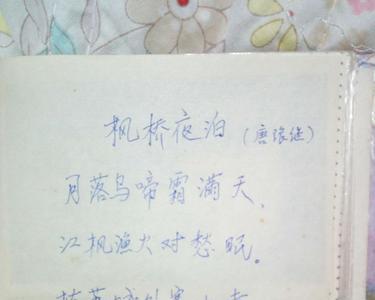 枫桥夜泊（唐张继）
月落鸟啼霜满天、
江枫渔火对愁眠。